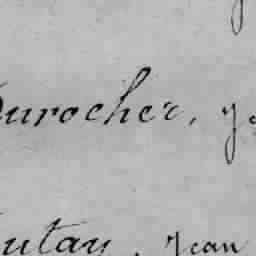 Durocher, J
utau, Jean